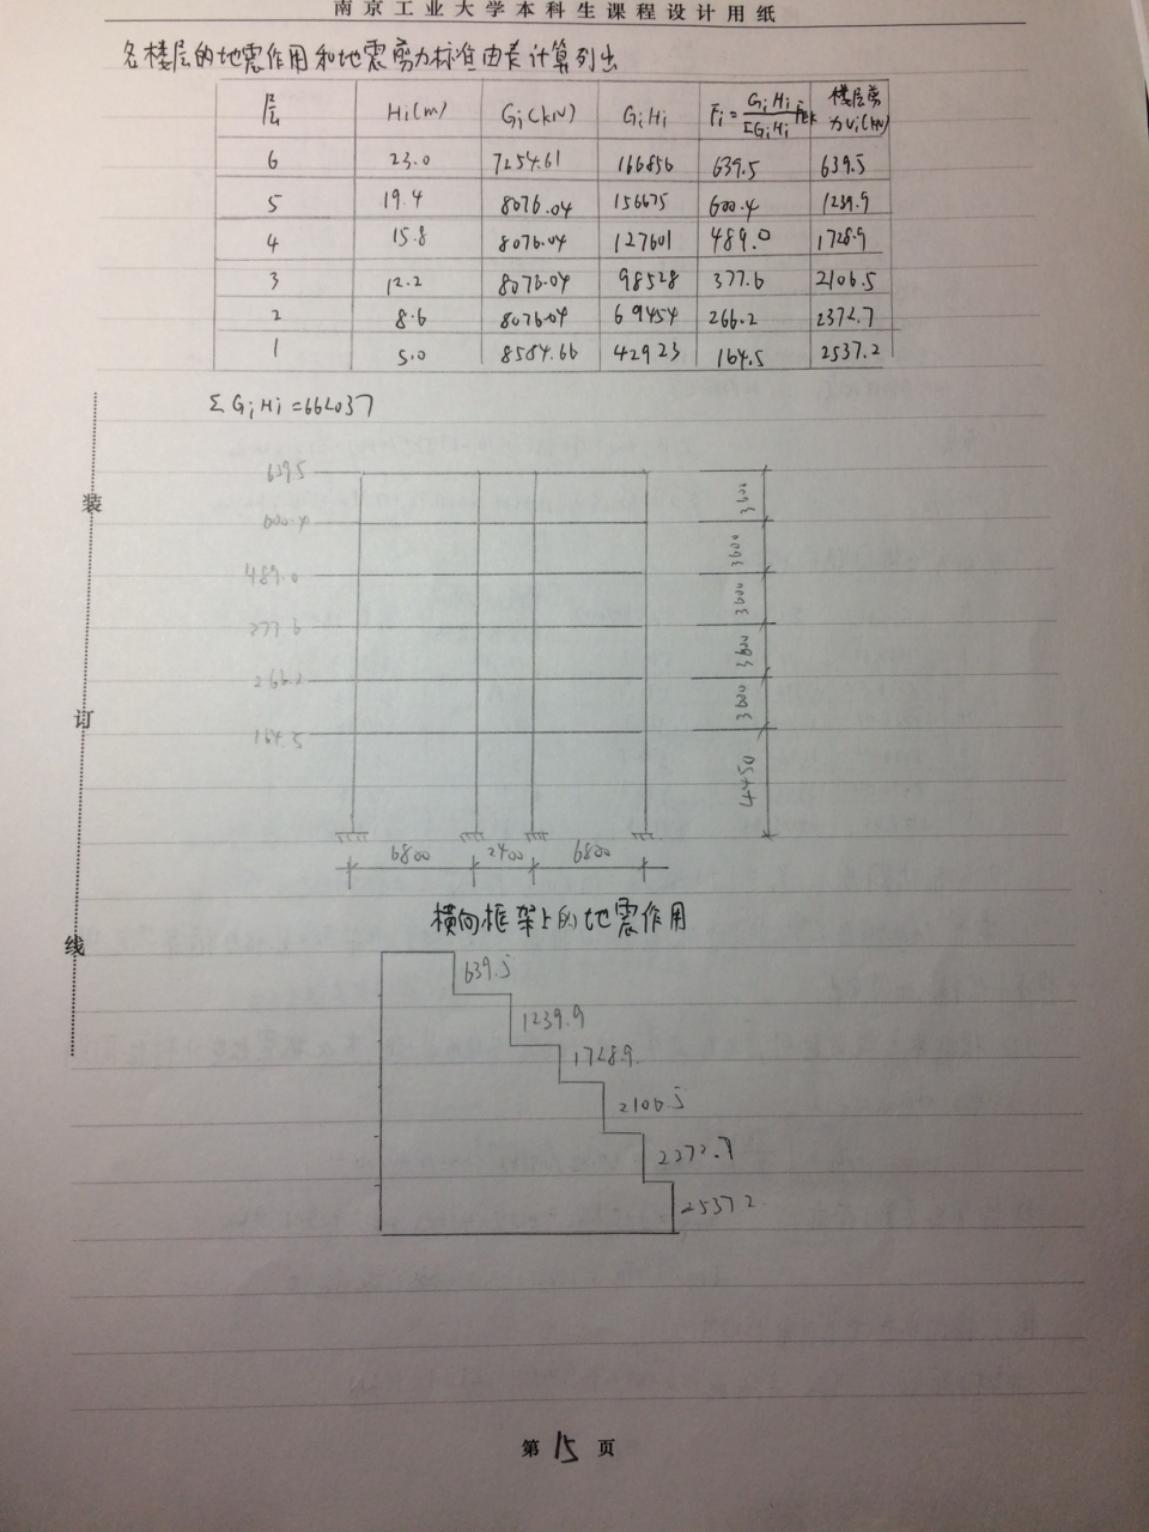 南京工业大学本科生课程设计用纸
各楼层的地震作用和地震剪力标准值由表计算列出
层 Hi(m) Gi(kN) GiHi Fi=GiHi/ΣGiHi FEK 楼层剪力Vi(kN)
6 23.0 7254.61 166856 639.5 639.5
5 19.4 8076.04 156675 600.4 1239.9
4 15.8 8076.04 127601 489.0 1728.9
3 12.2 8076.04 98528 377.6 2106.5
2 8.6 8076.04 69454 266.2 2372.7
1 5.0 8584.66 42923 164.5 2537.2
ΣGiHi=662037
639.5
600.4
489.0
377.6
266.2
164.5
3600
3600
3600
3600
3600
4450
6800 2400 6800
横向框架上的地震作用
639.5
1239.9
1728.9
2106.5
2372.7
2537.2
装
订
线
第 15 页